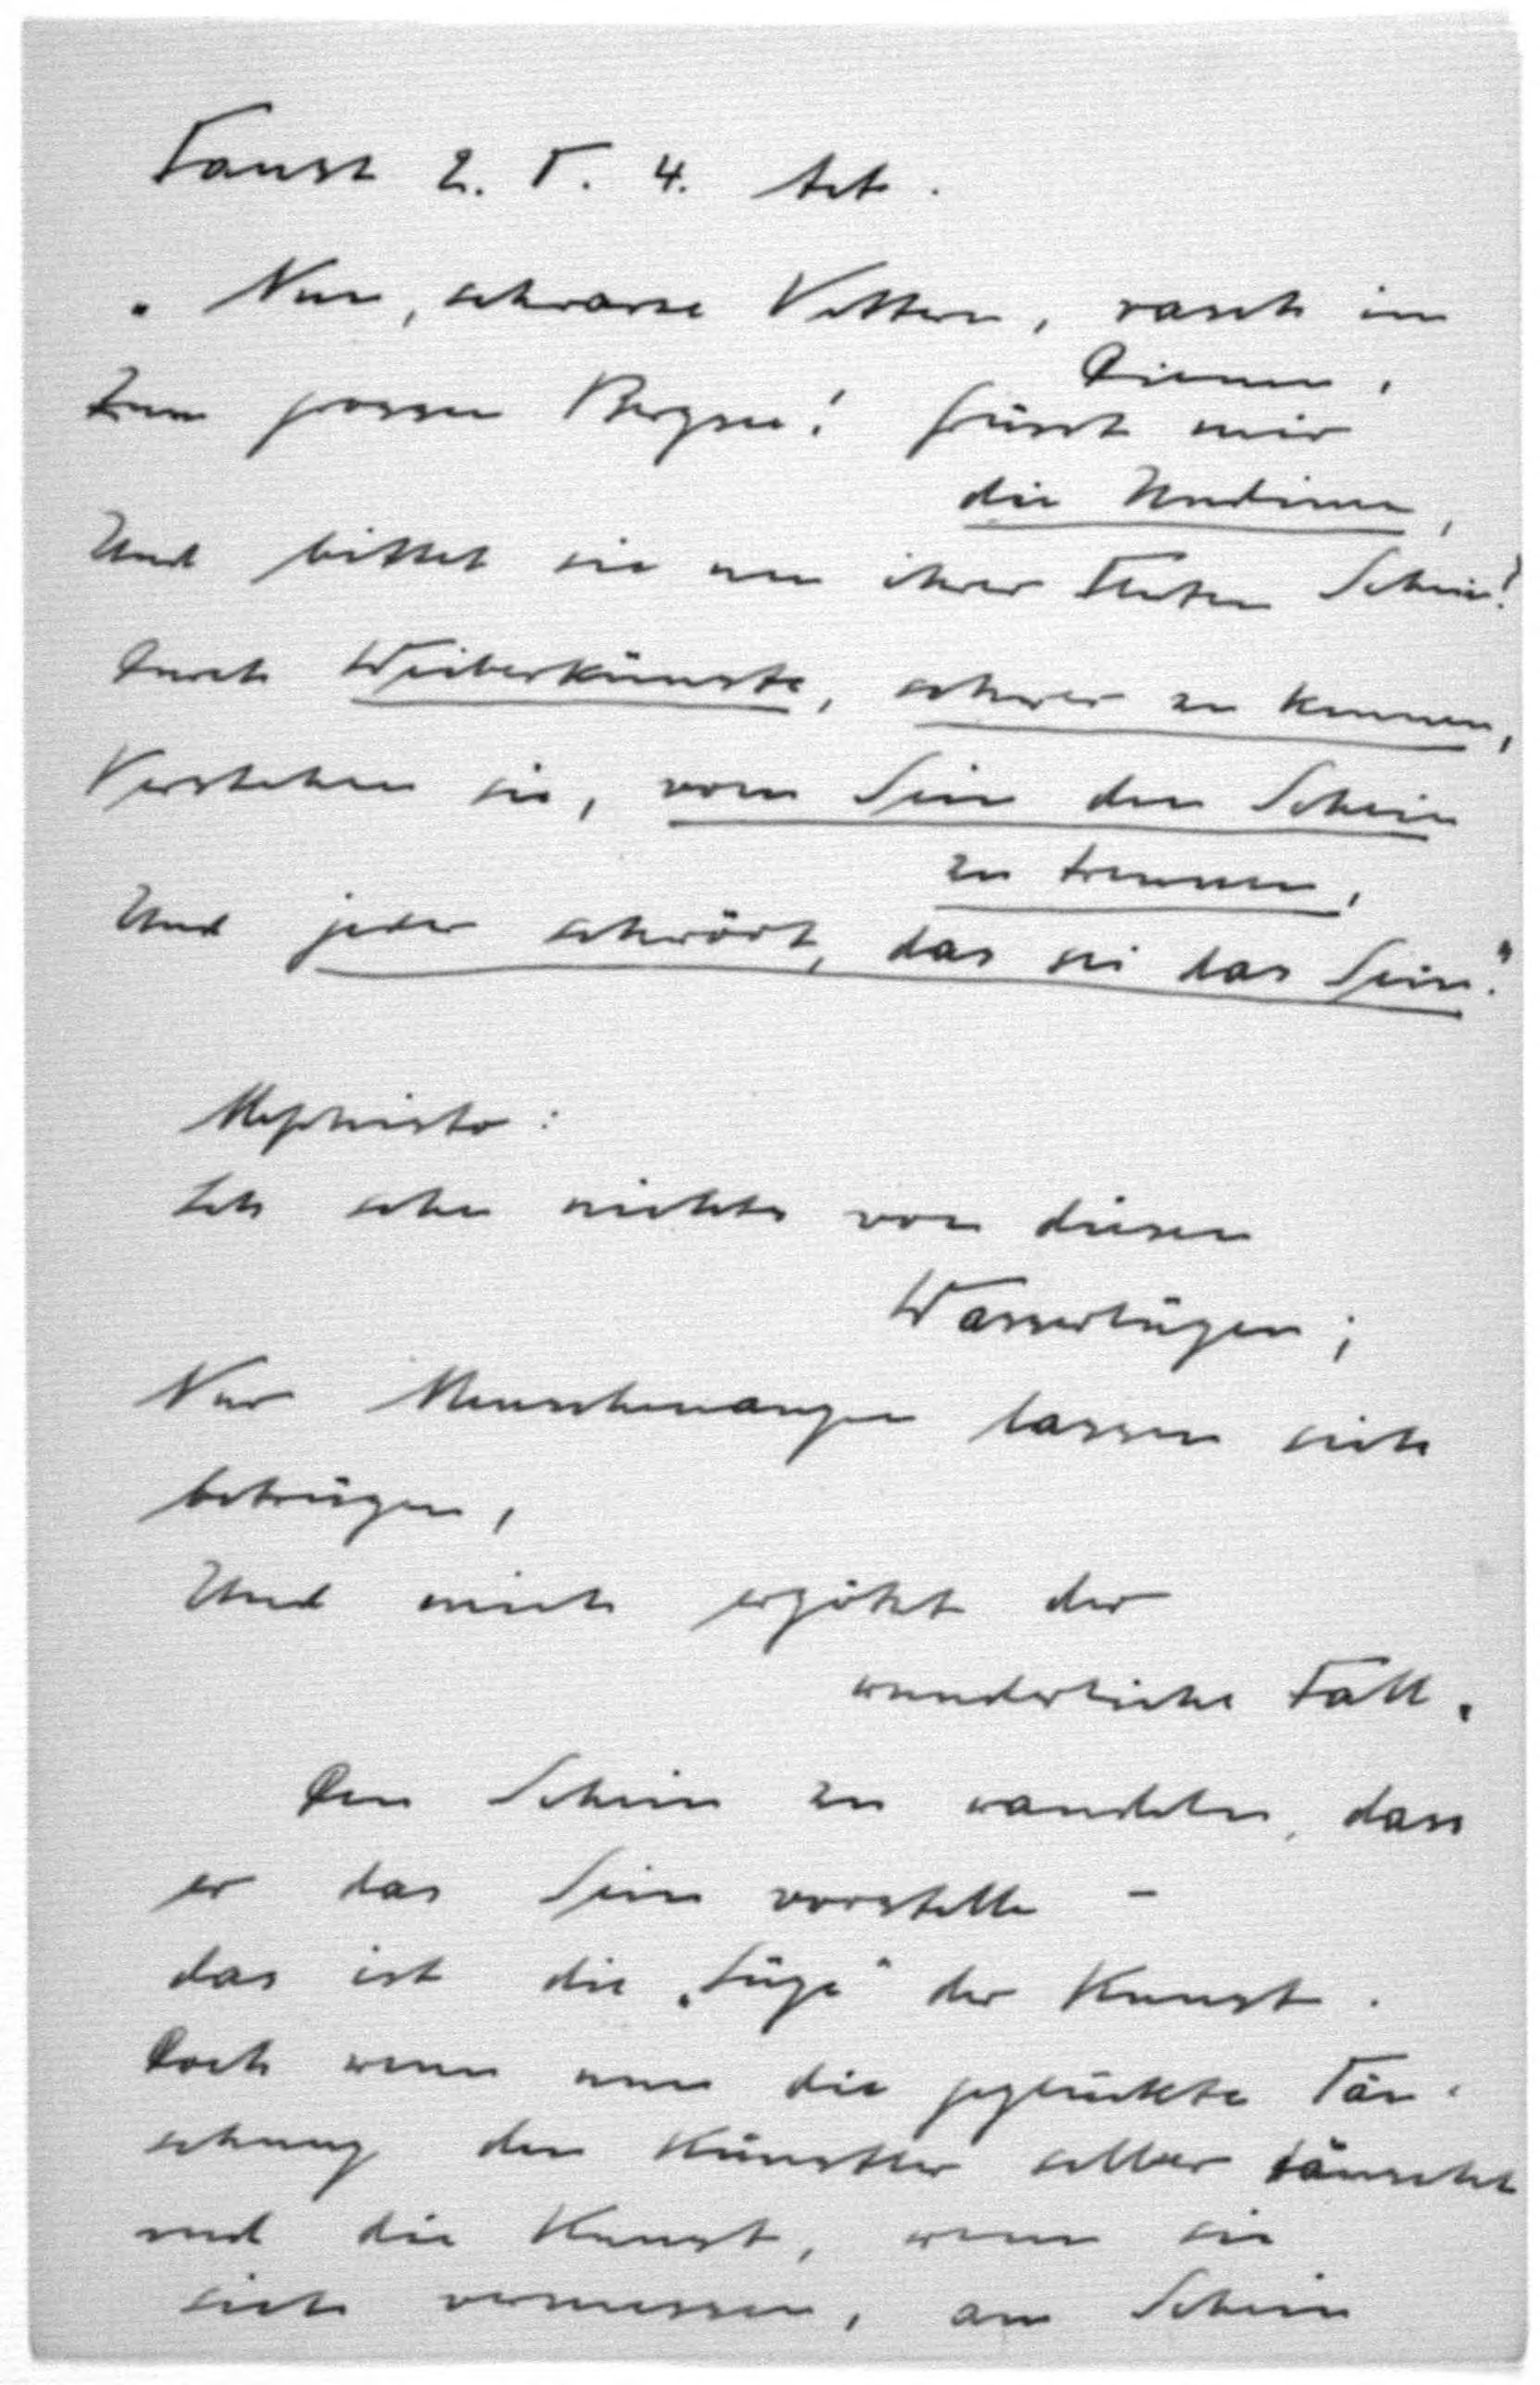 Faust 2. T. 4. Akt.
„Nun, schwarze Vettern, rasch im
Dienen,
Zum grossen Bergsee! grüsst mir
die Undinen,
Und bittet sie um ihrer Fluten Schein!
Durch Weiberkünste, schwer zu kennen,
Verstehen sie, vom Sein den Schein
zu trennen,
Und jeder schwört, das sei das Sein."
Mephisto:
Ich sehe nichts von diesen
Wasserlügen;
Nur Menschenaugen lassen sich
betrügen,
Und mich ergötzt der
wunderliche Fall.
Den Schein zu wandeln, dass
er das Sein vorstelle –
das ist die „Lüge" der Kunst.
Doch wenn nun die geglückte Täu-
schung den Künstler selber täuscht
und die Kunst, wenn sie
sich vermessen, am Schein